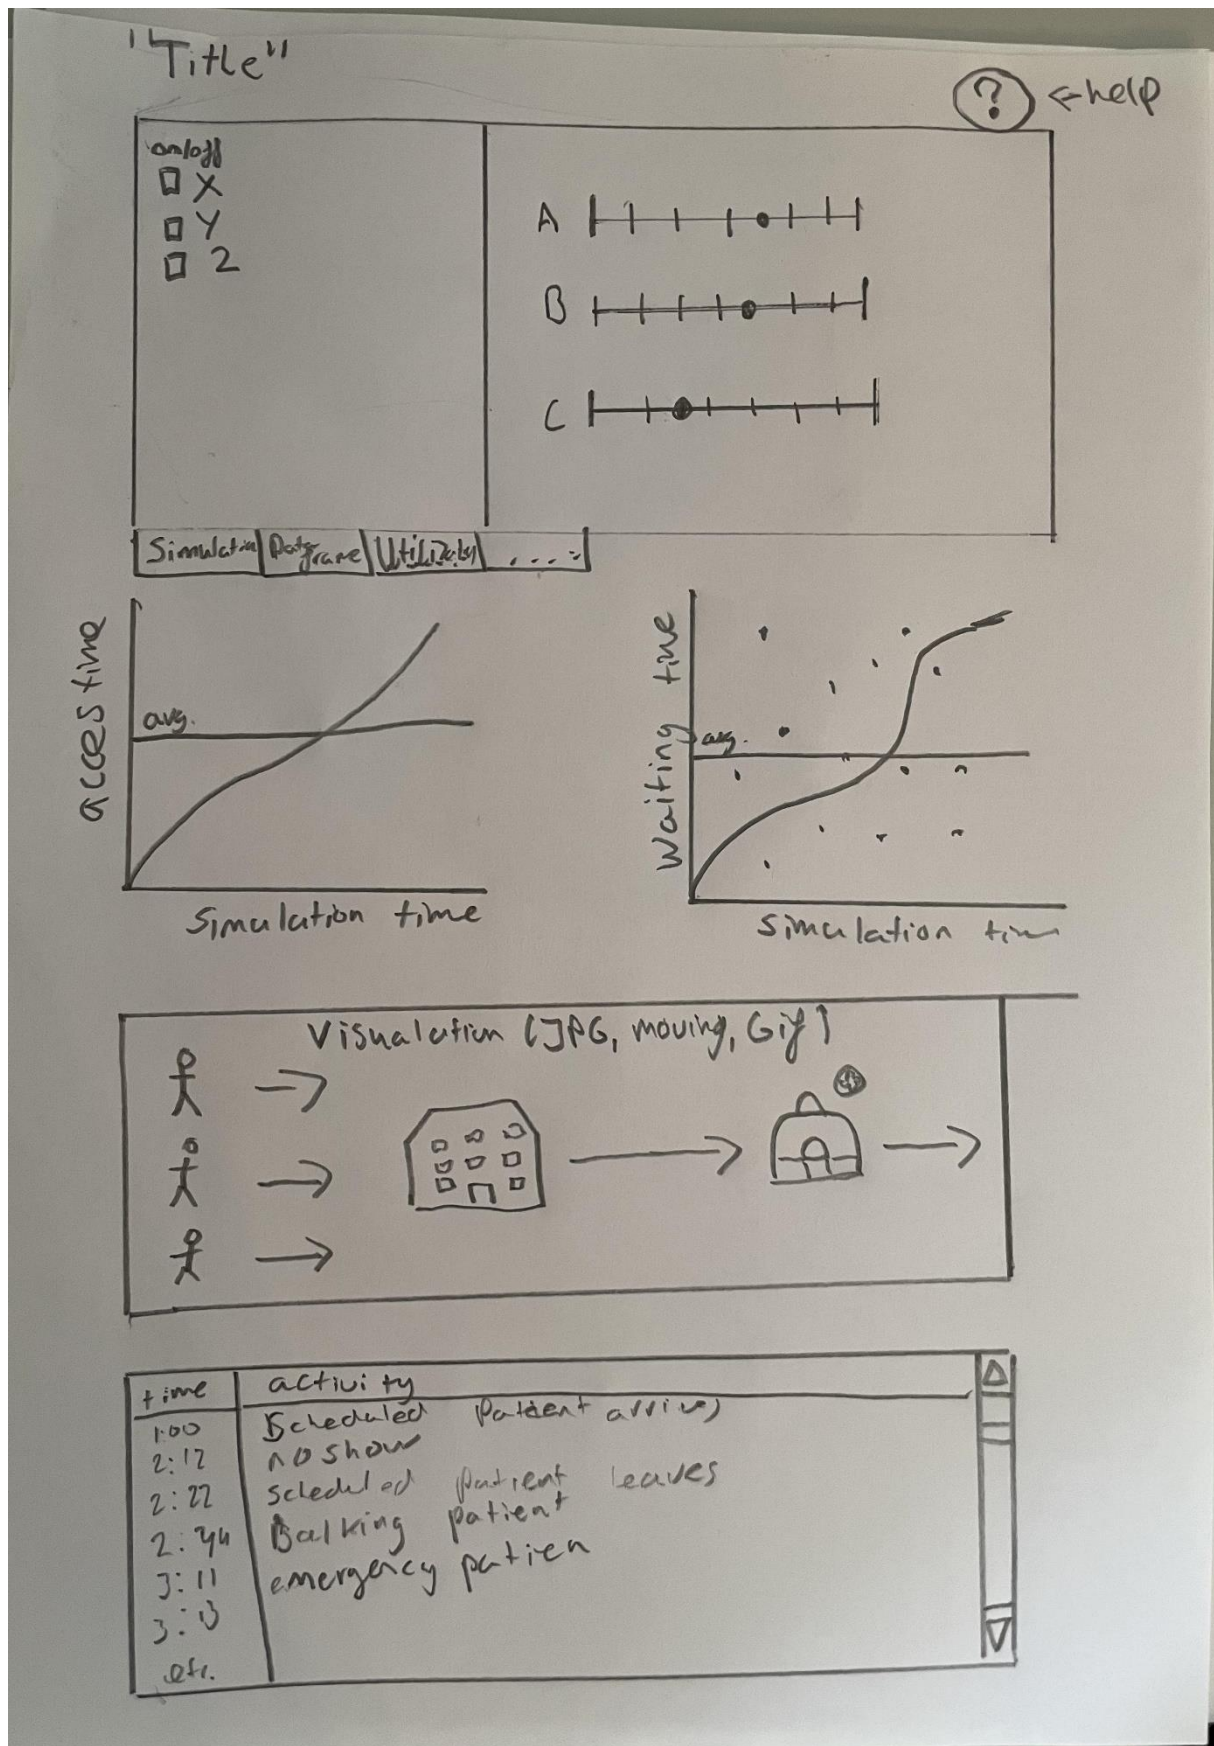 "Title"
? ← help
on/off
X
Y
Z
A
B
C
Simulation Data frame ....
acces time
avg.
simulation time
Waiting time
avg.
simulation
Visualation (JPG, moving, Gif)
time activity
1:00 Scheduled Patient
2:12 no show
2:22 scheduled patient leaves
2:44 Balking patient
3:11 emergency patien
3:13
etc.